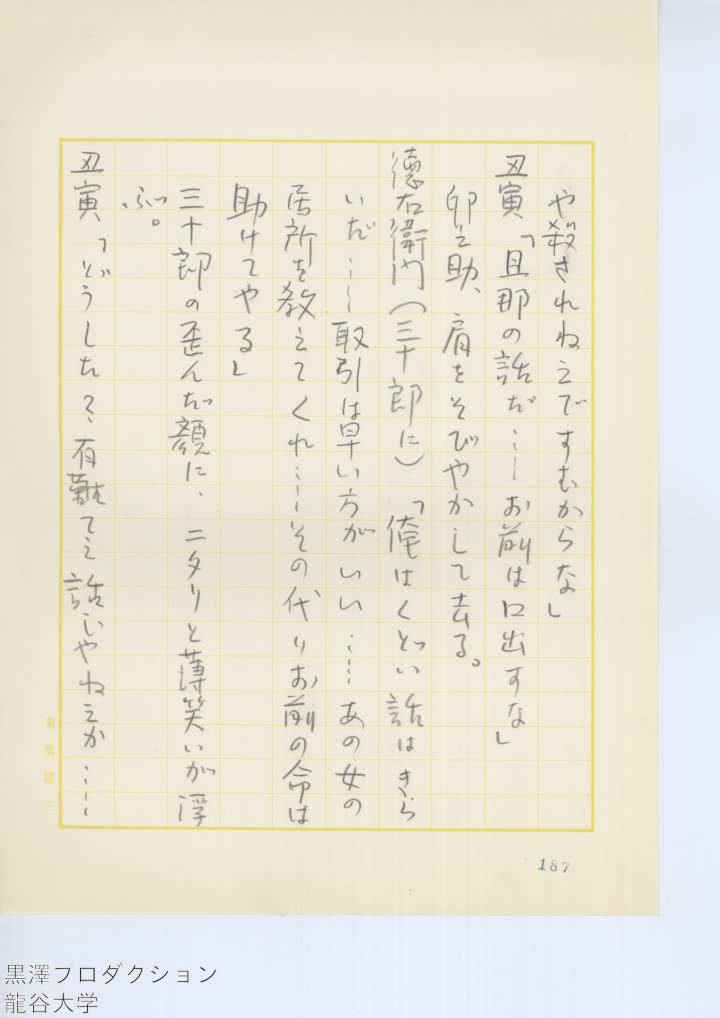 や殺されねえですむからな」
丑寅「旦那の話だ……お前は口出すな」
卯之助、肩をそびやかして去る。
徳右衛門（三十郎に）「俺はくどい話はきら
いだ……取引は早い方がいい……あの女の
居所を教えてくれ……その代りお前の命は
助けてやる」
三十郎の歪んだ顔に、ニタリと薄笑いが浮
ぶ。
丑寅「どうした？、有難てえ話じやねえか……
187
黒澤プロダクション
龍谷大学